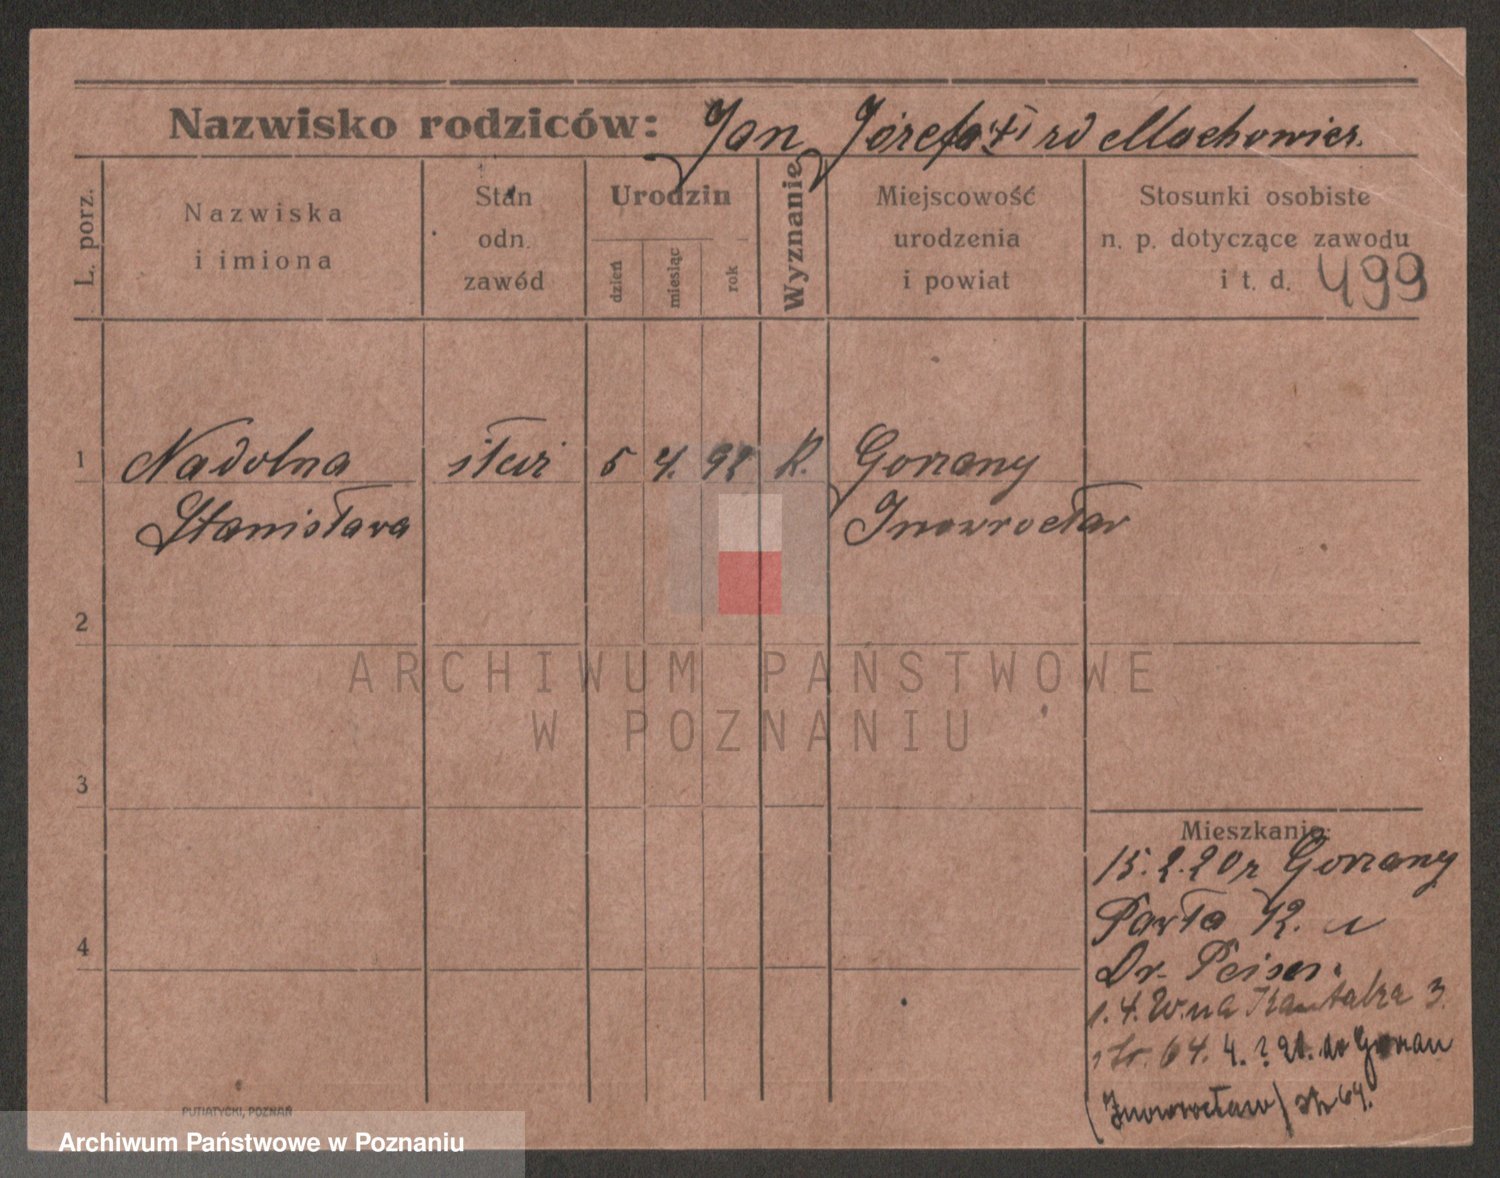 Nazwisko rodziców: Jan Józefa rd Machowicz.
L. porz.
Nazwiska
i imiona
Stan
odn.
zawód
Urodzin
dzień
miesiąc
rok
Wyznanie
Miejscowość
urodzenia
i powiat
Stosunki osobiste
n. p. dotyczące zawodu
i t. d. 499
1 Nadolna służ 5 4. 98 K. Gorzany
Stanisława Inowrocław
2
3
4
ARCHIWUM PAŃSTWOWE
W POZNANIU
Mieszkanie:
15.2.20 z Gorzany
Pawła 12. u
Dr. Peiser.
1.4. W. na Kantaka 3.
str. 64. 4. 20. do Gorzan
(Inowrocław) str 64.
PUTIATYCKI, POZNAŃ
Archiwum Państwowe w Poznaniu